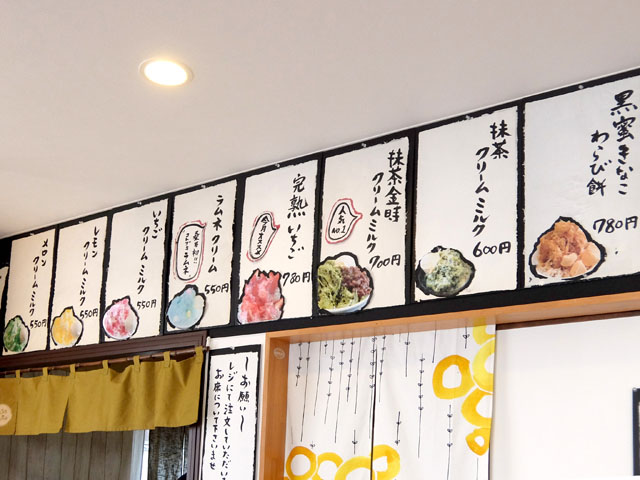 黒蜜きなこ
わらび餅
780円
抹茶
クリームミルク
600円
抹茶金時
クリームミルク
700円
人気
NO.1
完熟いちご
780円
今月オススメ
ラムネクリーム
550円
いちご
クリームミルク
550円
レモン
クリームミルク
550円
メロン
クリームミルク
550円
〜お願い〜
レジにて注文していただいて
お席について下さいませ